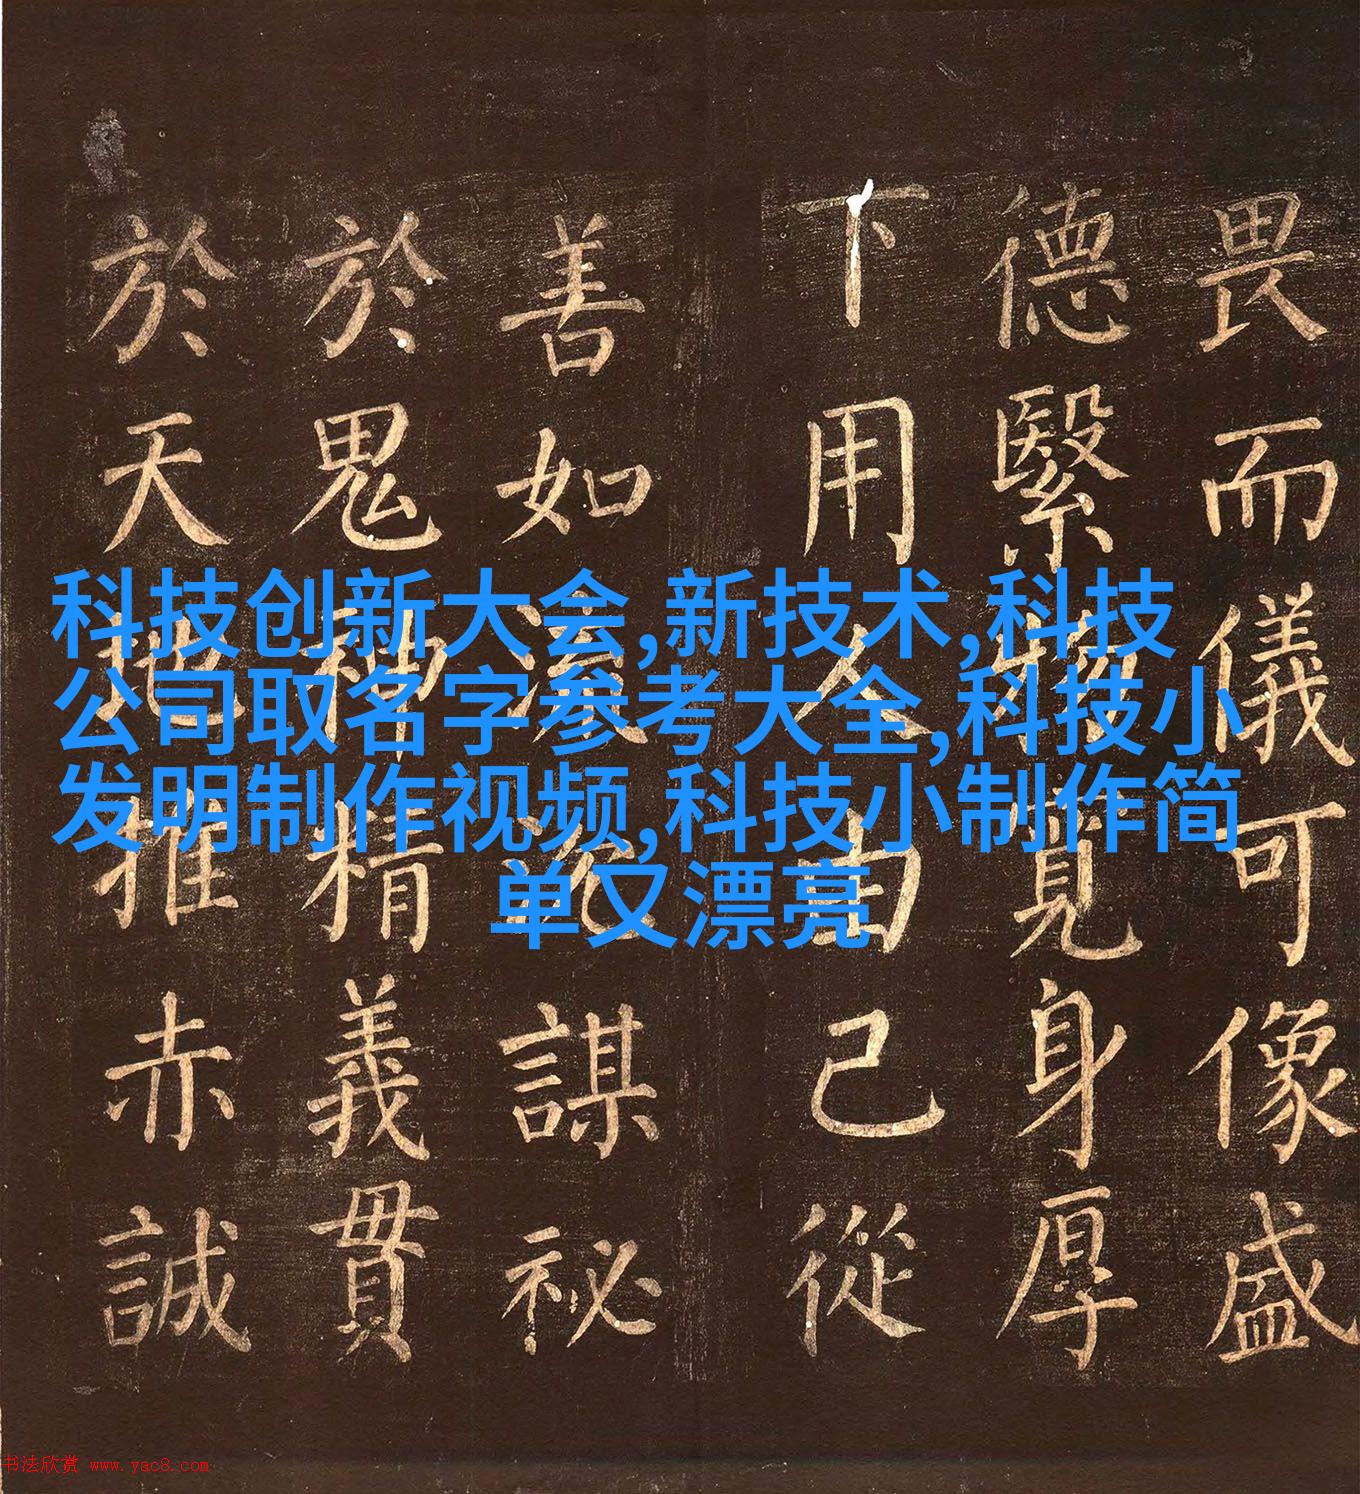 畏而儀可像盛
德繄物寬身厚
下用人由己從
善如流沉謀祕
於鬼神精義貫
於天地推赤誠
科技创新大会,新技术,科技
公司取名字参考大全,科技小
发明制作视频,科技小制作简
单又漂亮
书法欣赏 www.yac8.com